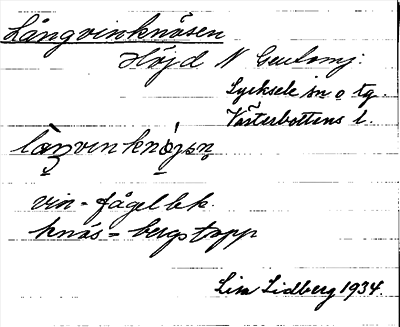 Långvinknösen
Höjd N
Lycksele sn o tg.
Västerbottens l.
vin - fågel bek.
knös - bergstopp
Lisa Lidberg 1934.